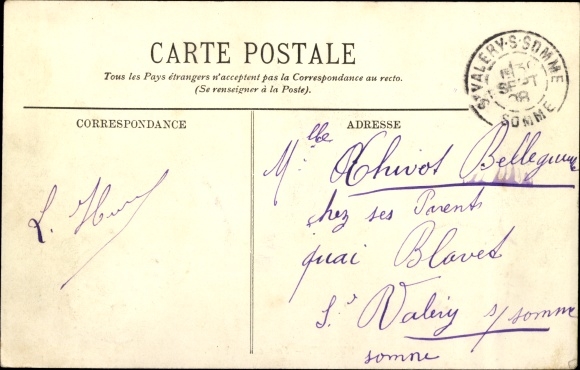 CARTE POSTALE
Tous les Pays étrangers n'acceptent pas la Correspondance au recto.
(Se renseigner à la Poste).
CORRESPONDANCE
ADRESSE
St VALERY-S-SOMME
SEPT
08
SOMME
Mlle Thivot Bellegueule
chez ses Parents
quai Blavet
St Valery s/somme
somme
L.